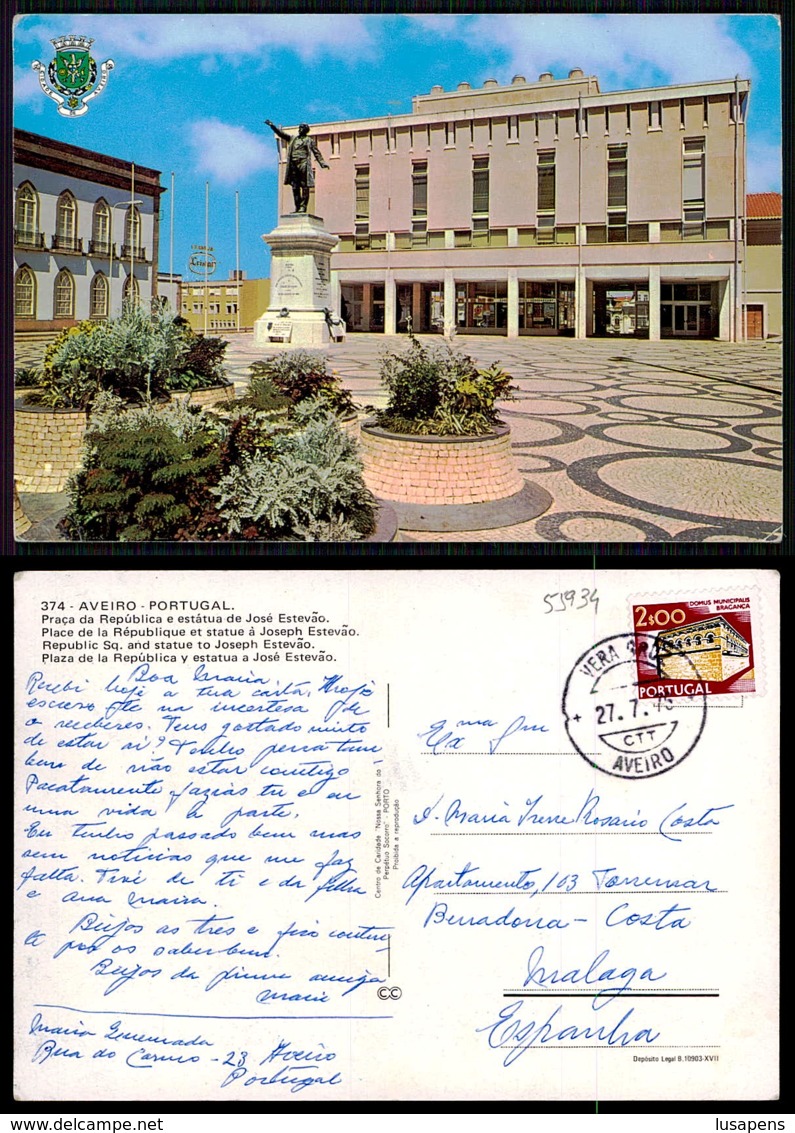 CIDADE DE AVEIRO
374 - AVEIRO - PORTUGAL.
Praça da República e estátua de José Estevão.
Place de la République et statue à Joseph Estevão.
Republic Sq. and statue to Joseph Estevão.
Plaza de la República y estatua a José Estevão.
55934
2$00
DOMUS MUNICIPALIS
BRAGANÇA
PORTUGAL
VERA CRUZ
27. 7.
CTT
AVEIRO
Boa Maria
Recebi hoje a tua carta. Hoje
escrevo-te na incertesa de
o receberes. Tens gostado muito
de estar aí? Tenho pena tam
bem de não estar contigo
Pacatamente fazias tu e eu
uma vida à parte.
Eu tenho passado bem mas
sem noticias que me faz
falta. Tive de ti e da filha
e
Beijos as tres e fico conten-
te por os saber bem.
Beijos da prima amiga
Marie
Maria
Rua do Carmo - 23 Aveiro
Portugal
Centro de Caridade "Nossa Senhora do
Perpétuo Socorro" - PORTO
Proibida a reprodução
CC
Exma Snra
D. Maria Irene Rosario Costa
Apartamento, 103 Torremar
Benadona - Costa
Malaga
Espanha
Depósito Legal B. 10903-XVII
lusapens